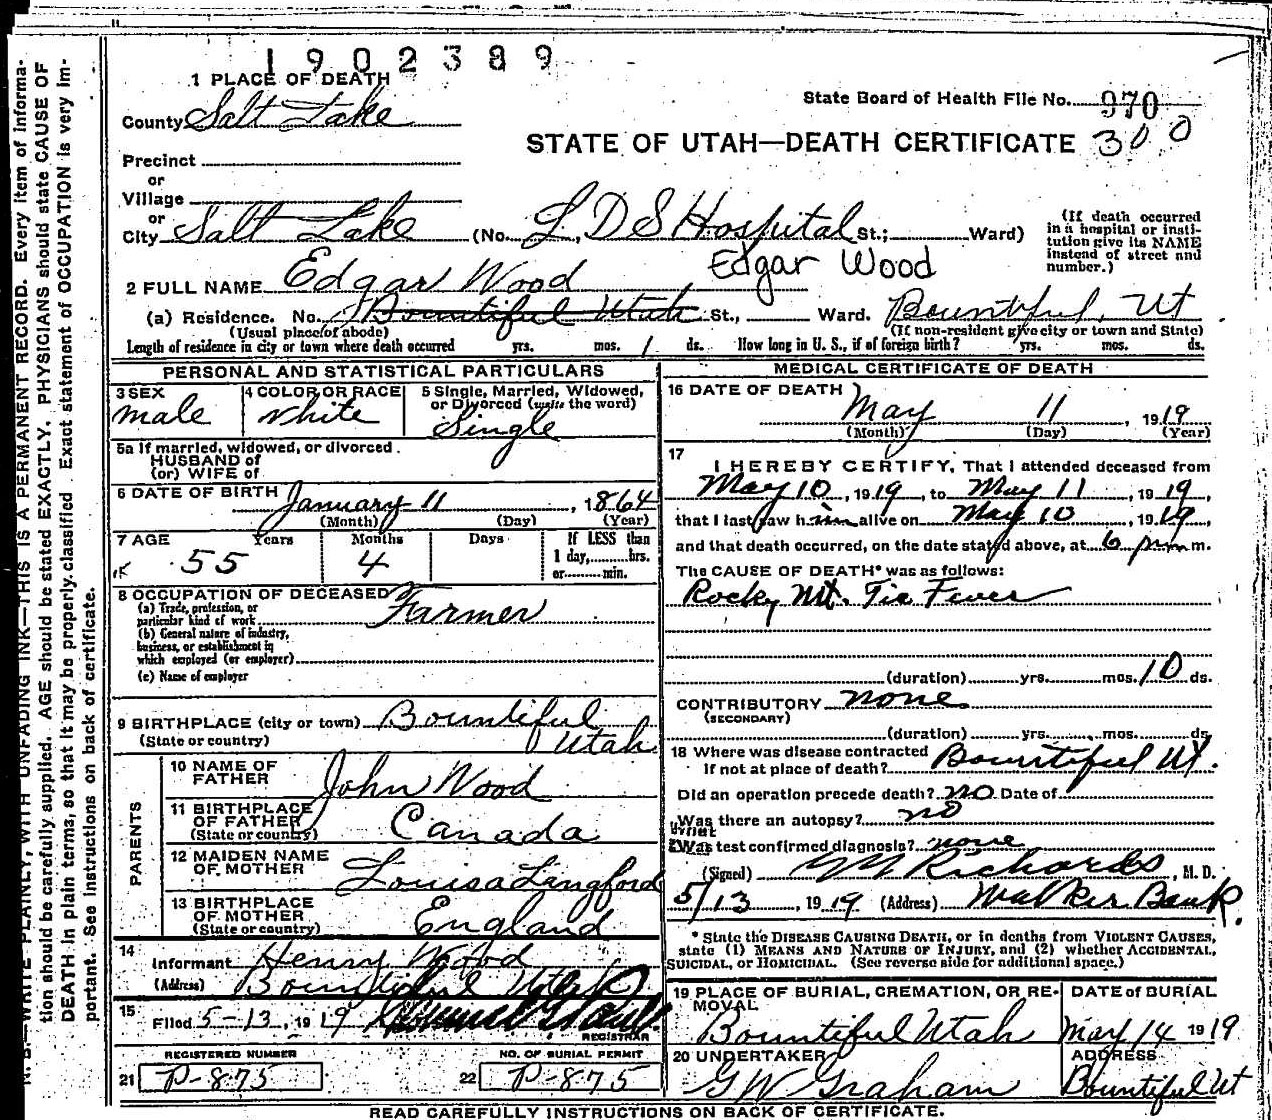 1902389
1 PLACE OF DEATH
State Board of Health File No. 970
County Salt Lake
STATE OF UTAH—DEATH CERTIFICATE 300
Precinct
or
Village
or
City Salt Lake (No. L D S Hospital St.; Ward)
(If death occurred in a hospital or institution give its NAME instead of street and number.)
Edgar Wood
2 FULL NAME Edgar Wood
(a) Residence. No. Bountiful Utah St., Ward. Bountiful, Ut
(Usual place of abode) (If non-resident give city or town and State)
Length of residence in city or town where death occurred yrs. mos. 1 ds. How long in U. S., if of foreign birth? yrs. mos. ds.
PERSONAL AND STATISTICAL PARTICULARS
3 SEX 4 COLOR OR RACE 5 Single, Married, Widowed, or Divorced (write the word)
male white Single
5a If married, widowed, or divorced
HUSBAND of
(or) WIFE of
6 DATE OF BIRTH January 11, 1864
(Month) (Day) (Year)
7 AGE Years Months Days If LESS than
1 day, hrs.
or min.
55 4
8 OCCUPATION OF DECEASED
(a) Trade, profession, or
particular kind of work Farmer
(b) General nature of industry,
business, or establishment in
which employed (or employer)
(c) Name of employer
9 BIRTHPLACE (city or town) Bountiful
(State or country) Utah
PARENTS
10 NAME OF
FATHER John Wood
11 BIRTHPLACE
OF FATHER Canada
(State or country)
12 MAIDEN NAME
OF MOTHER Louisa Langford
13 BIRTHPLACE
OF MOTHER England
(State or country)
14
Informant Henry Wood
(Address) Bountiful Utah
15 Filed 5-13, 1919
REGISTRAR
REGISTERED NUMBER NO. OF BURIAL PERMIT
21 P-875 22 P-875
MEDICAL CERTIFICATE OF DEATH
16 DATE OF DEATH
May 11, 1919
(Month) (Day) (Year)
17
I HEREBY CERTIFY, That I attended deceased from
May 10, 1919, to May 11, 1919,
that I last saw him alive on May 10, 1919,
and that death occurred, on the date stated above, at 6 pm m.
The CAUSE OF DEATH* was as follows:
Rocky Mt. Tic Fever
(duration) yrs. mos. 10 ds.
CONTRIBUTORY none
(SECONDARY)
(duration) yrs. mos. ds.
18 Where was disease contracted
If not at place of death? Bountiful Ut.
Did an operation precede death? no Date of
Was there an autopsy? no
What test confirmed diagnosis? none
(Signed) Richards, M. D.
5/13, 1919 (Address) Walker Bank.
* State the DISEASE CAUSING DEATH, or in deaths from VIOLENT CAUSES,
state (1) MEANS AND NATURE OF INJURY, and (2) whether ACCIDENTAL,
SUICIDAL, or HOMICIDAL. (See reverse side for additional space.)
19 PLACE OF BURIAL, CREMATION, OR REMOVAL DATE of BURIAL
Bountiful Utah May 14 1919
20 UNDERTAKER ADDRESS
G W Graham Bountiful Ut
READ CAREFULLY INSTRUCTIONS ON BACK OF CERTIFICATE.
N. B.—WRITE PLAINLY, WITH UNFADING INK—THIS IS A PERMANENT RECORD. Every item of informa-
tion should be carefully supplied. AGE should be stated EXACTLY. PHYSICIANS should state CAUSE OF
DEATH in plain terms, so that it may be properly classified. Exact statement of OCCUPATION is very im-
portant. See instructions on back of certificate.